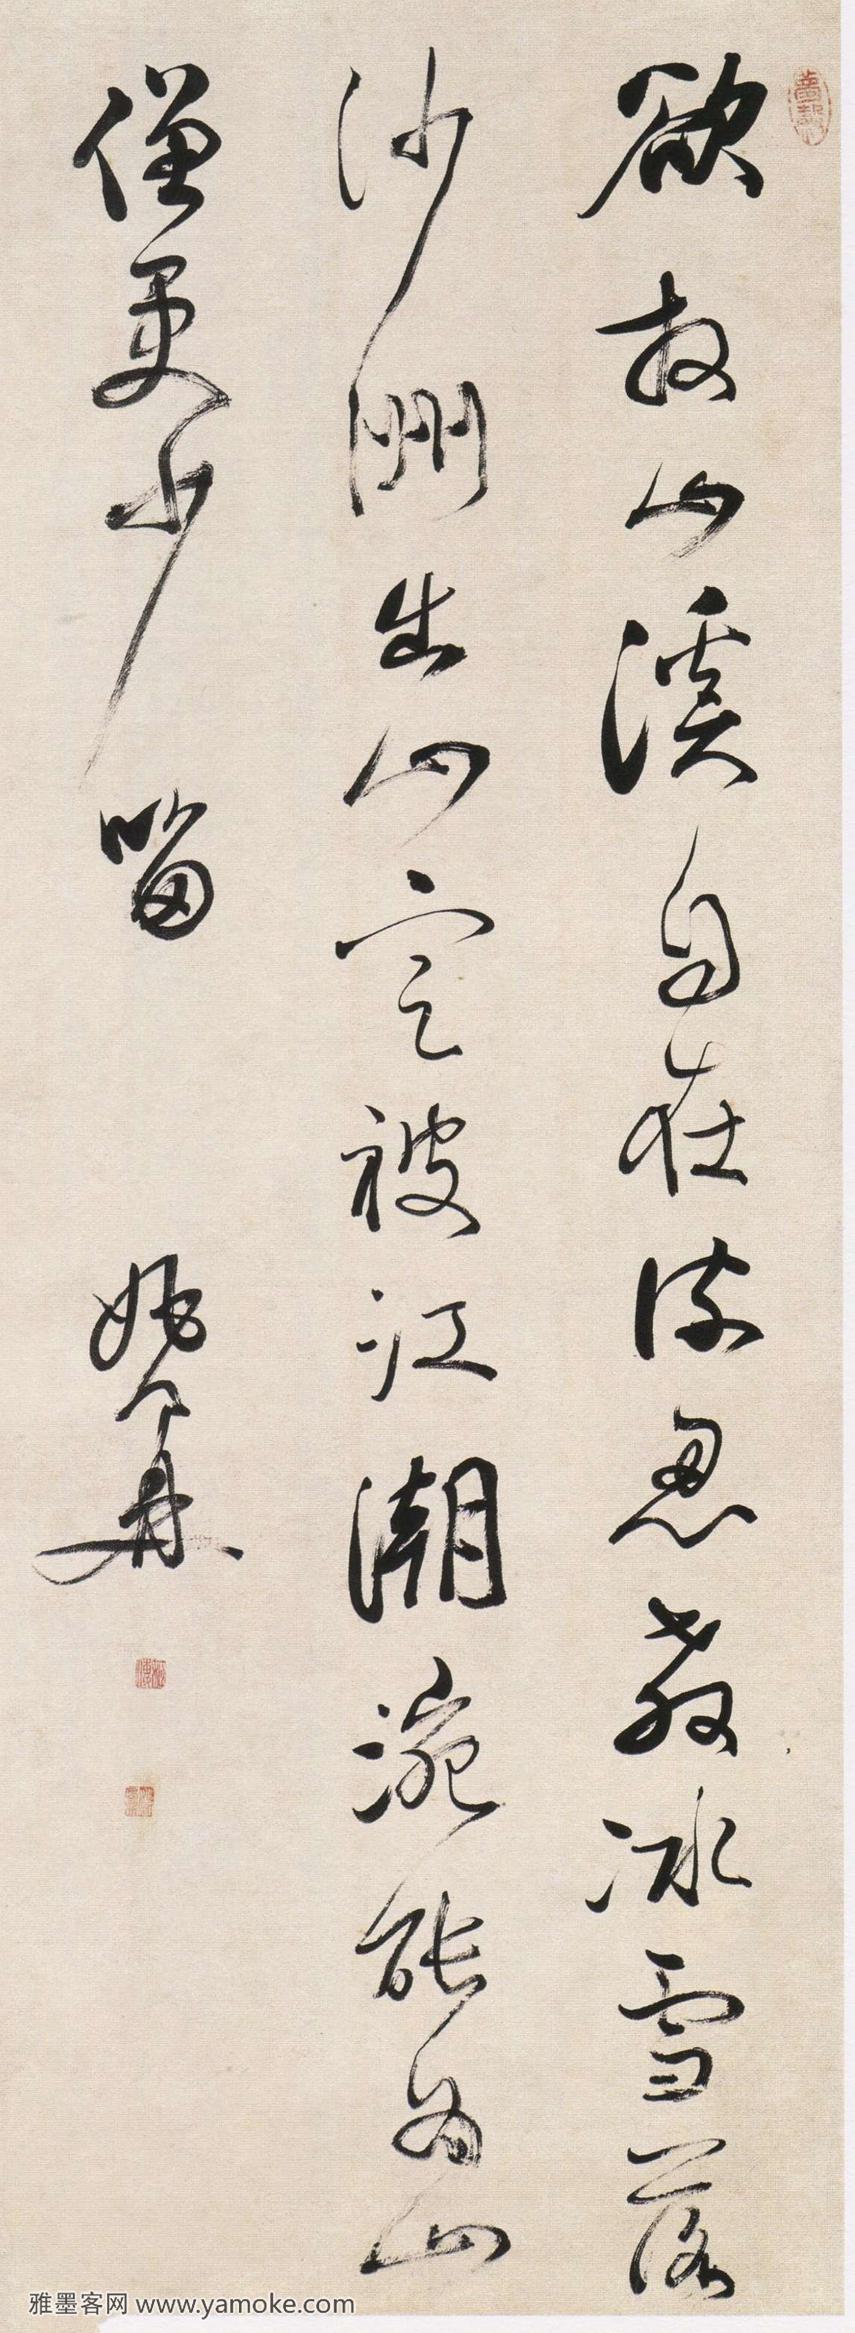 欲放山溪自在流忍教冰雪落
沙洲出山定被江潮涴能為山
僧更少留
姚鼐
雅墨客网 www.yamoke.com